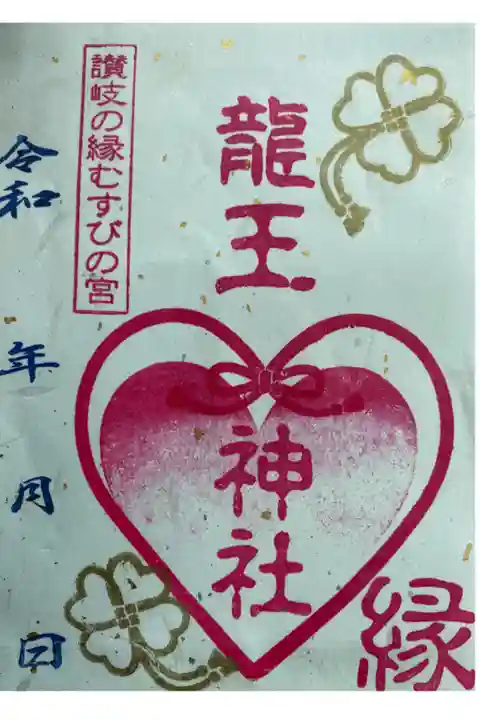 龍王神社
縁
讃岐の縁むすびの宮
令和 年 月 日